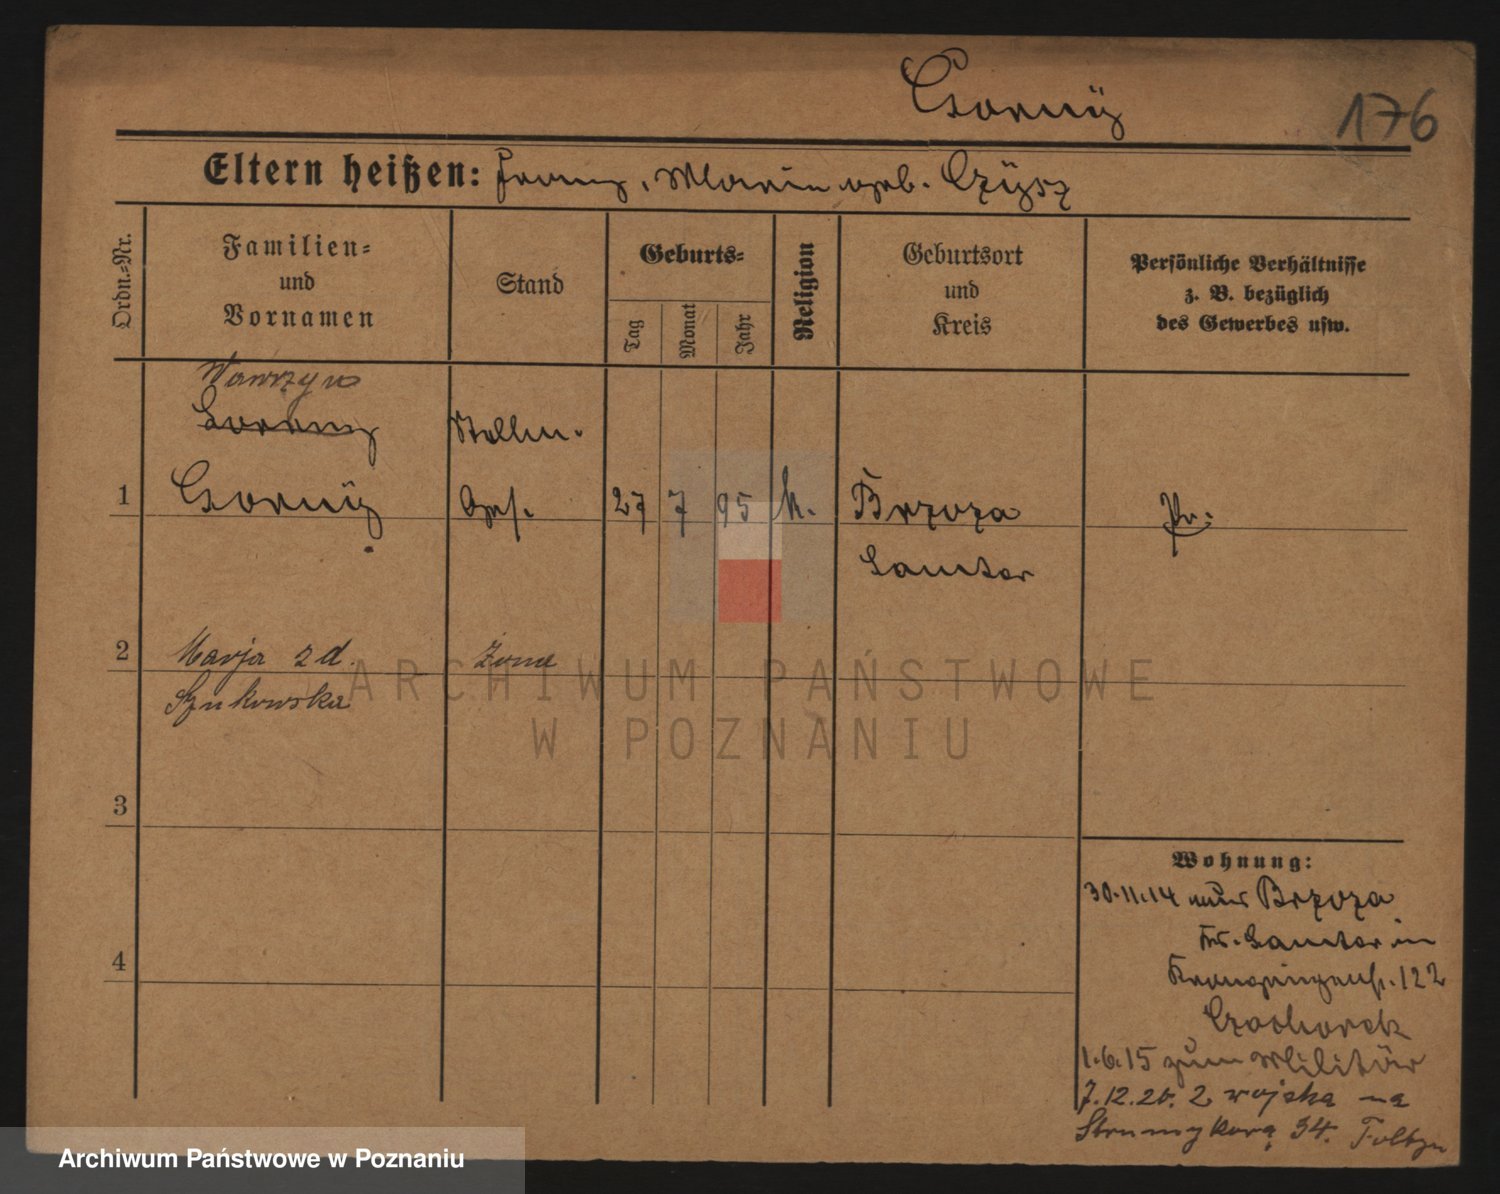 176
Eltern heißen: Franz, Maria geb.
Ordn.=Nr.
Familien=
und
Vornamen
Stand
Geburts=
Tag
Monat
Jahr
Religion
Geburtsort
und
Kreis
Persönliche Verhältnisse
z. B. bezüglich
des Gewerbes usw.
Wawrzyn
Lorenz
1 27 7 95 k. Brzoza Pr:
Samter
2 Marja z d. Żona
Szukowska
3
4
Wohnung:
30.11.14 aus Brzoza
Kr. Samter in
Kronprinzenstr. 122
1.6.15 zum Militär
7.12.20. z wojska na
Strumykową 34.
ARCHIWUM PAŃSTWOWE
W POZNANIU
Archiwum Państwowe w Poznaniu